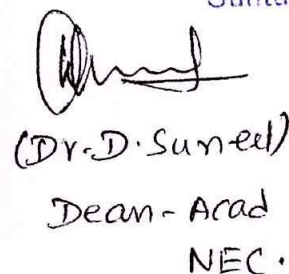 (Dr.D.Suneel)
Dean-Acad
NEC.